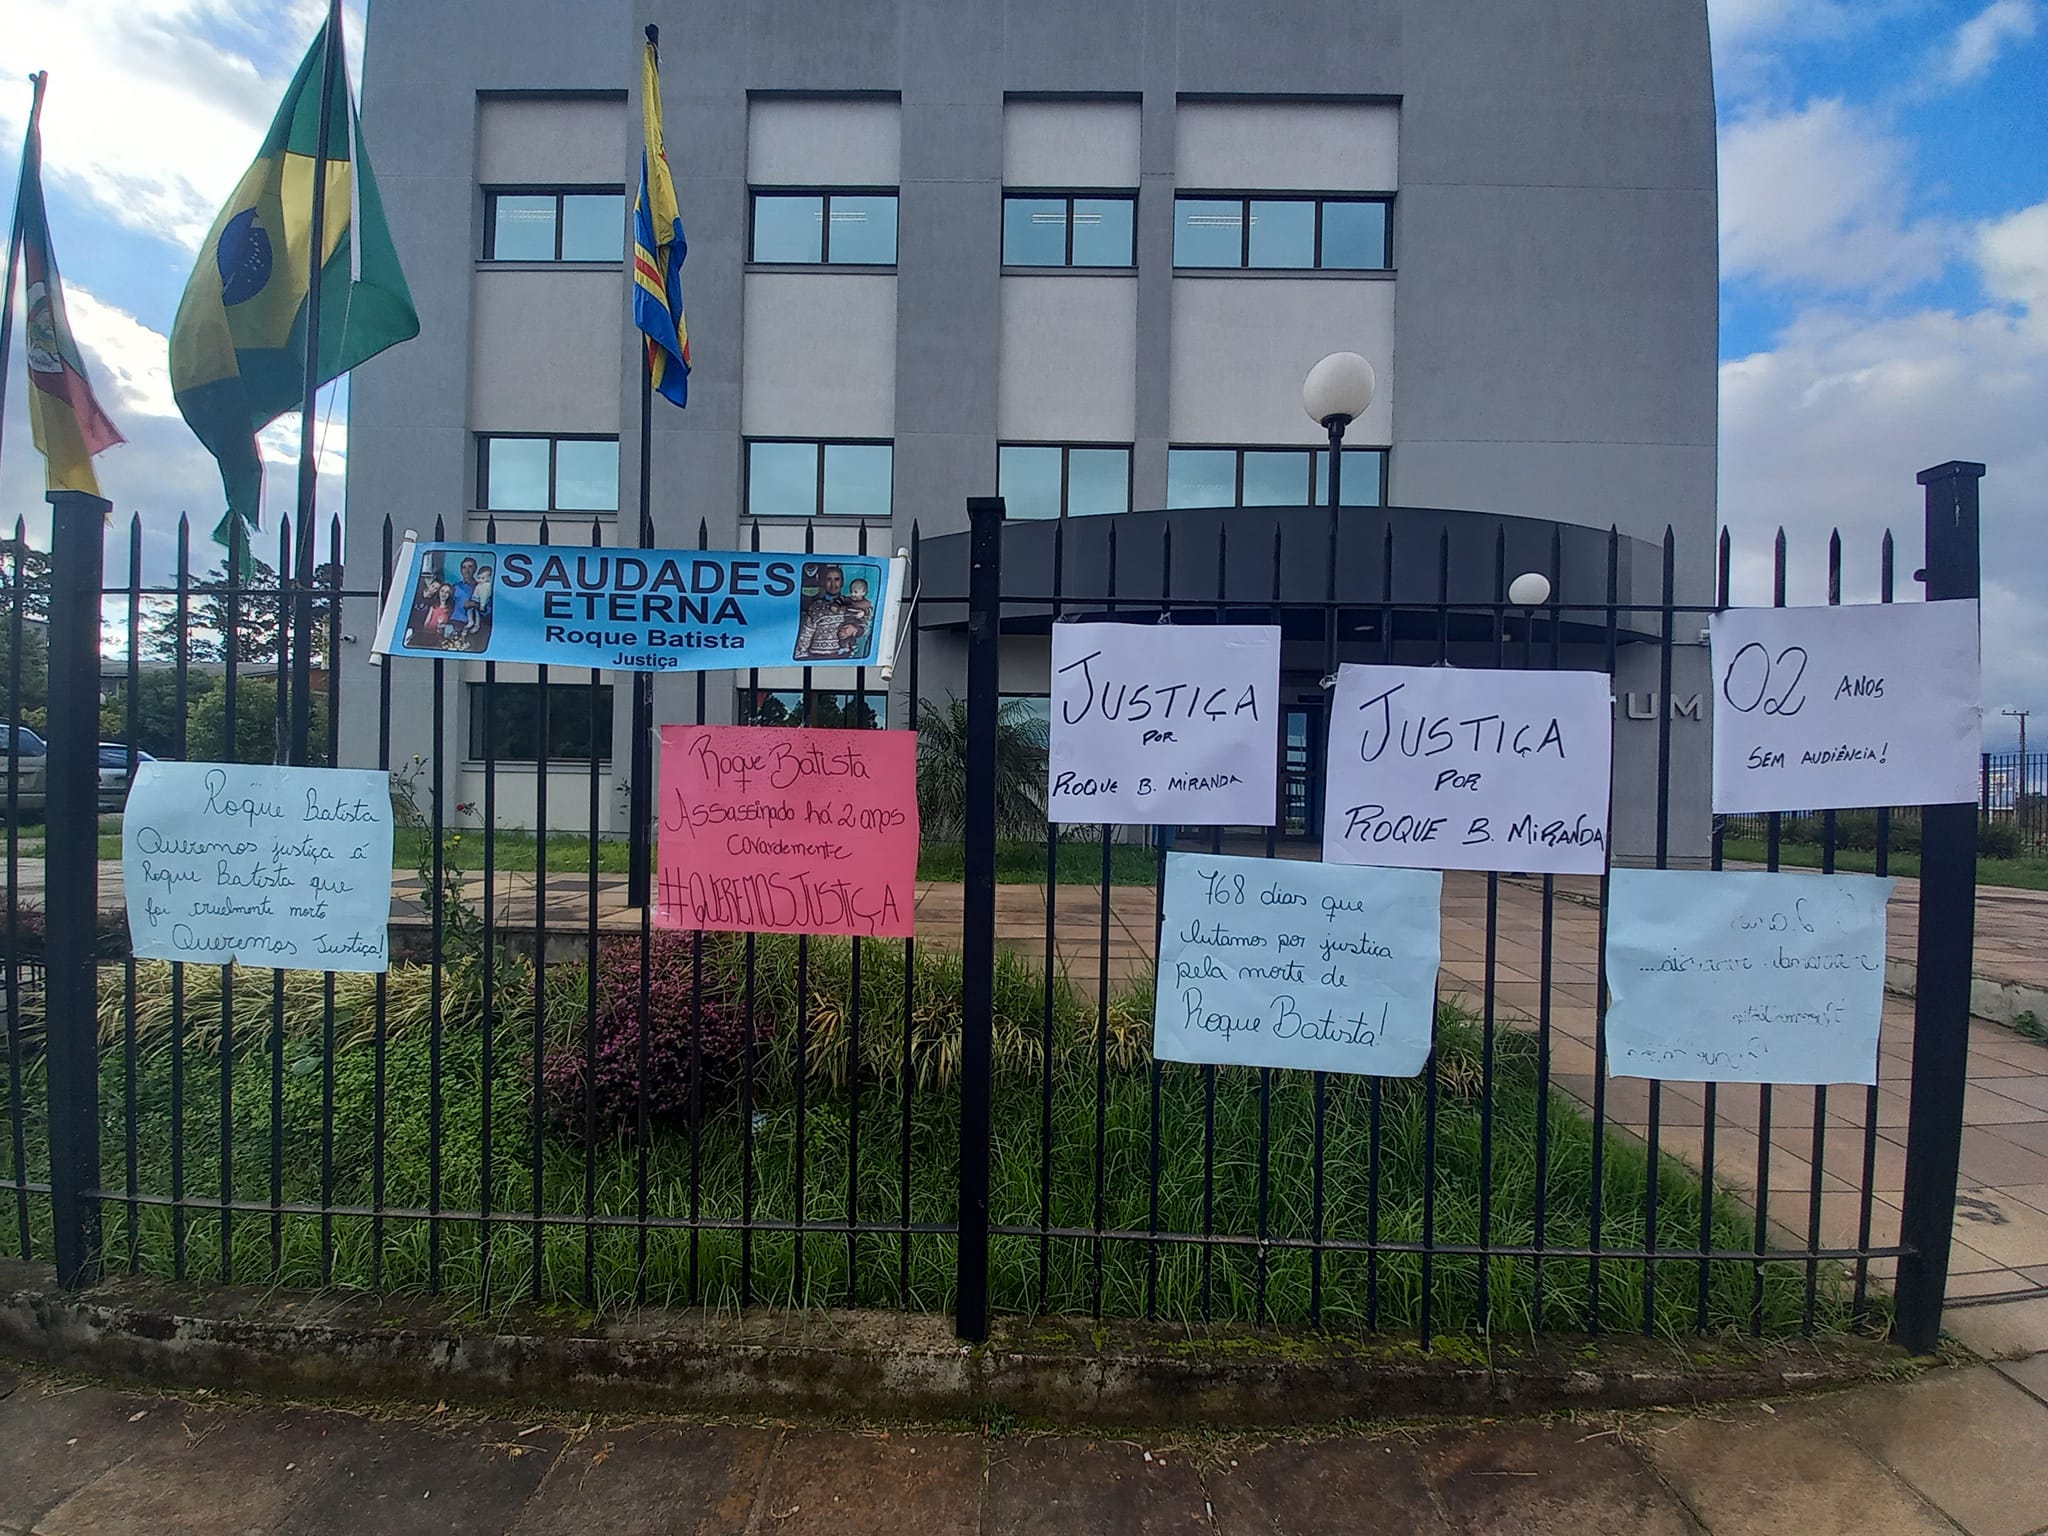 SAUDADES
ETERNA
Roque Batista
Justiça
Roque Batista
Queremos justiça á
Roque Batista que
foi cruelmente morto
Queremos Justiça!
Roque Batista
Assassinado há 2 anos
covardemente
#QUEREMOSJUSTIÇA
JUSTIÇA
POR
ROQUE B. MIRANDA
JUSTIÇA
POR
ROQUE B. MIRANDA
02 ANOS
SEM AUDIÊNCIA!
UM
768 dias que
lutamos por justiça
pela morte de
Roque Batista!